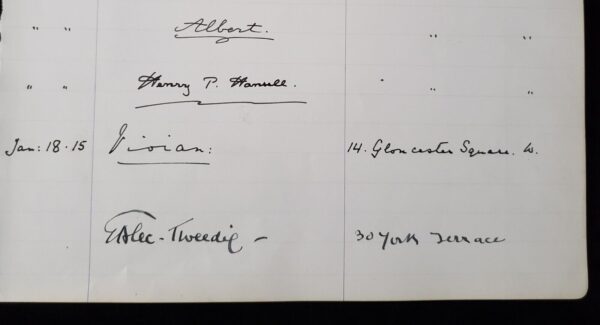 " " Albert. " "
" " Henry P. Hansell. " "
Jan: 18. 15 Vivian: 14. Gloucester Square. W.
EAlec-Tweedie - 30 York Terrace